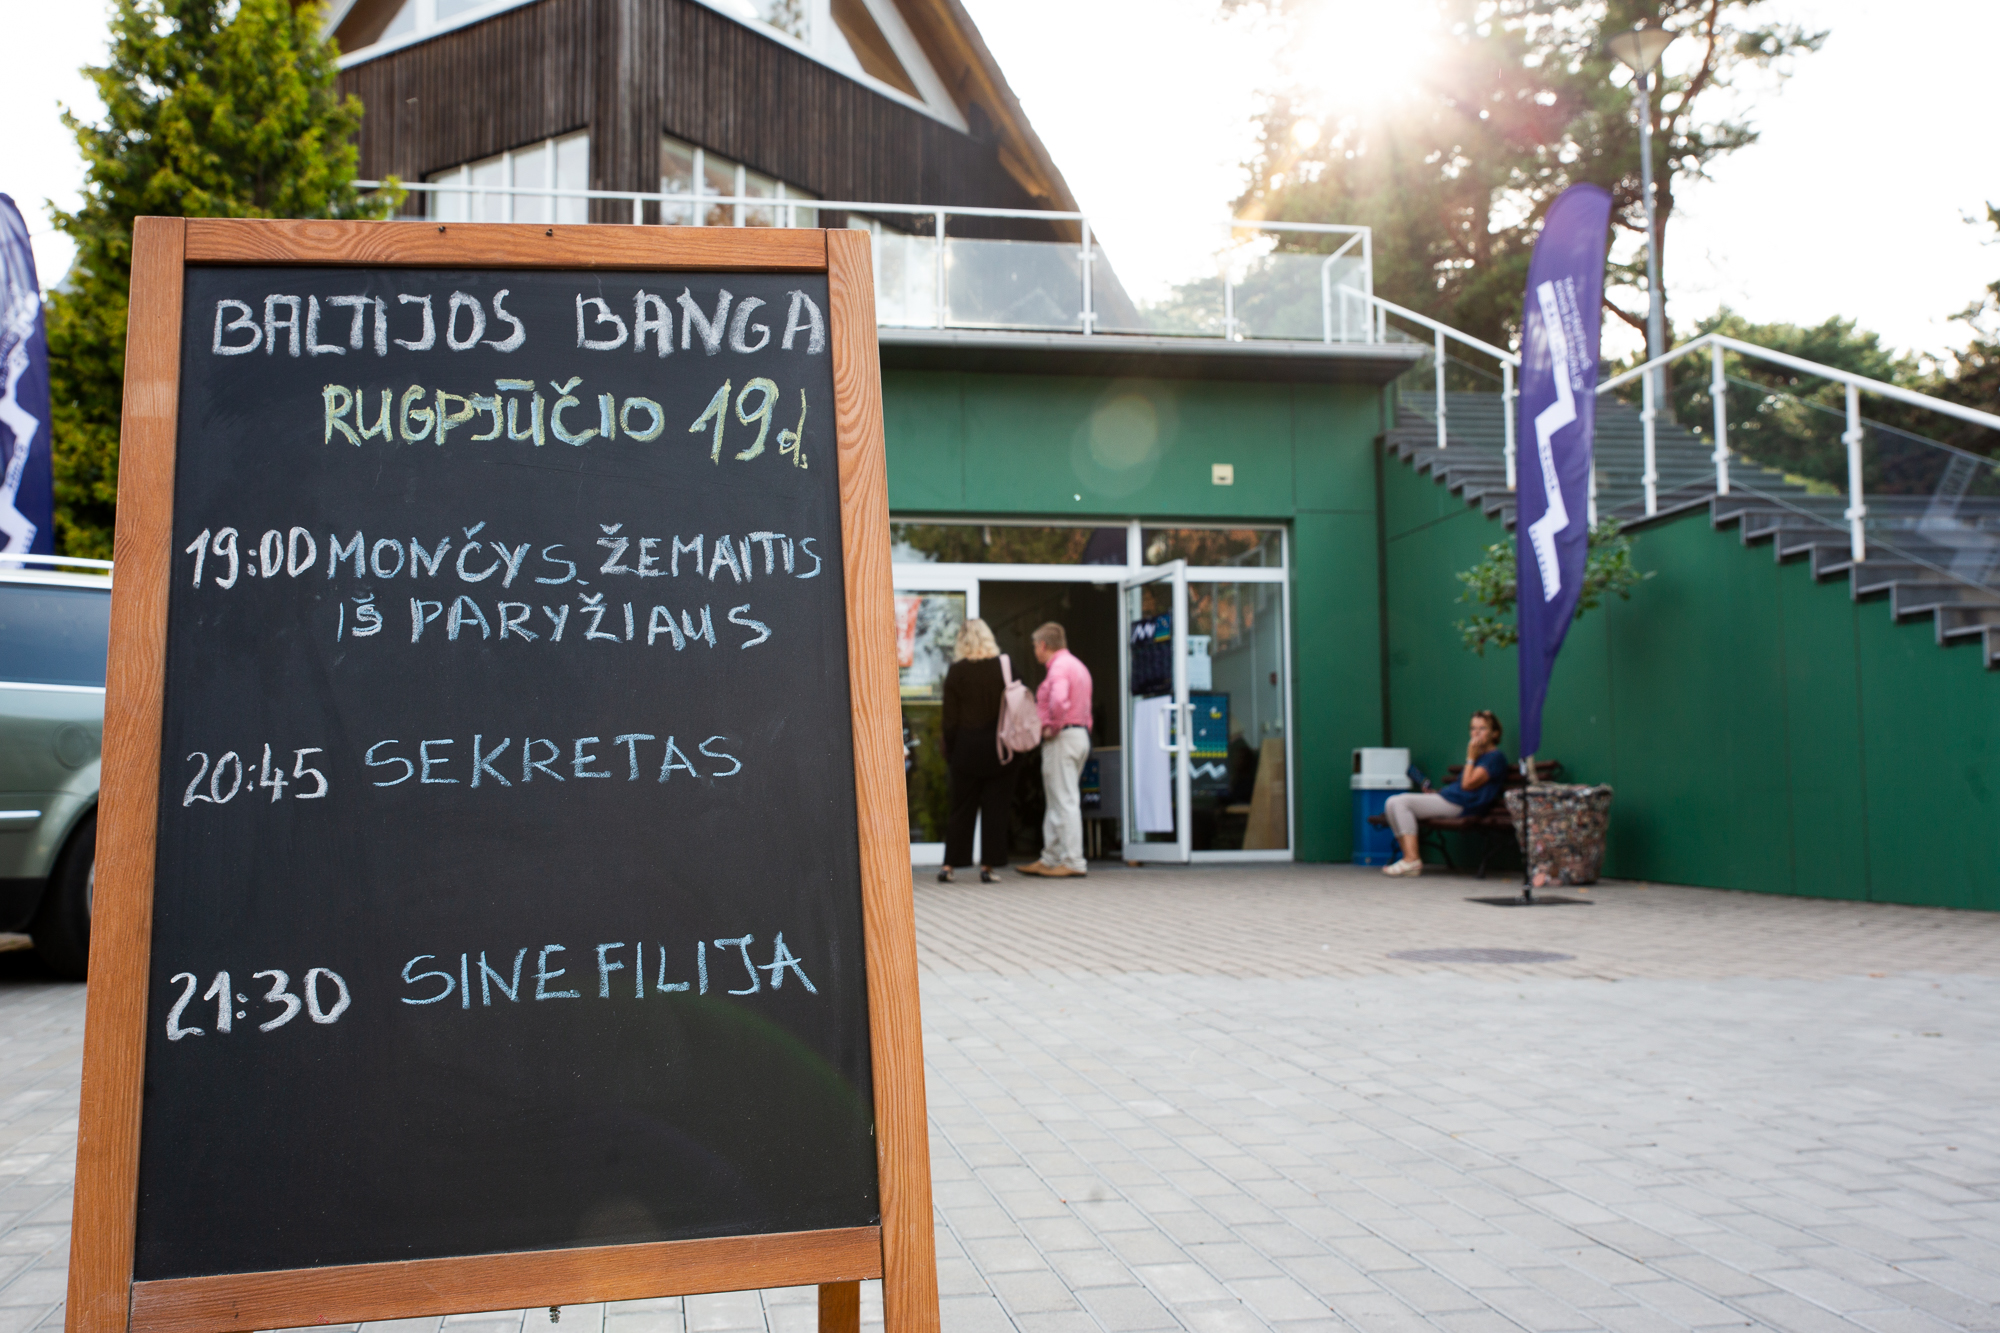 BALTIJOS BANGA
RUGPJŪČIO 19 d.
19:00 MONČYS. ŽEMAITIS
IŠ PARYŽIAUS
20:45 SEKRETAS
21:30 SINEFILIJA